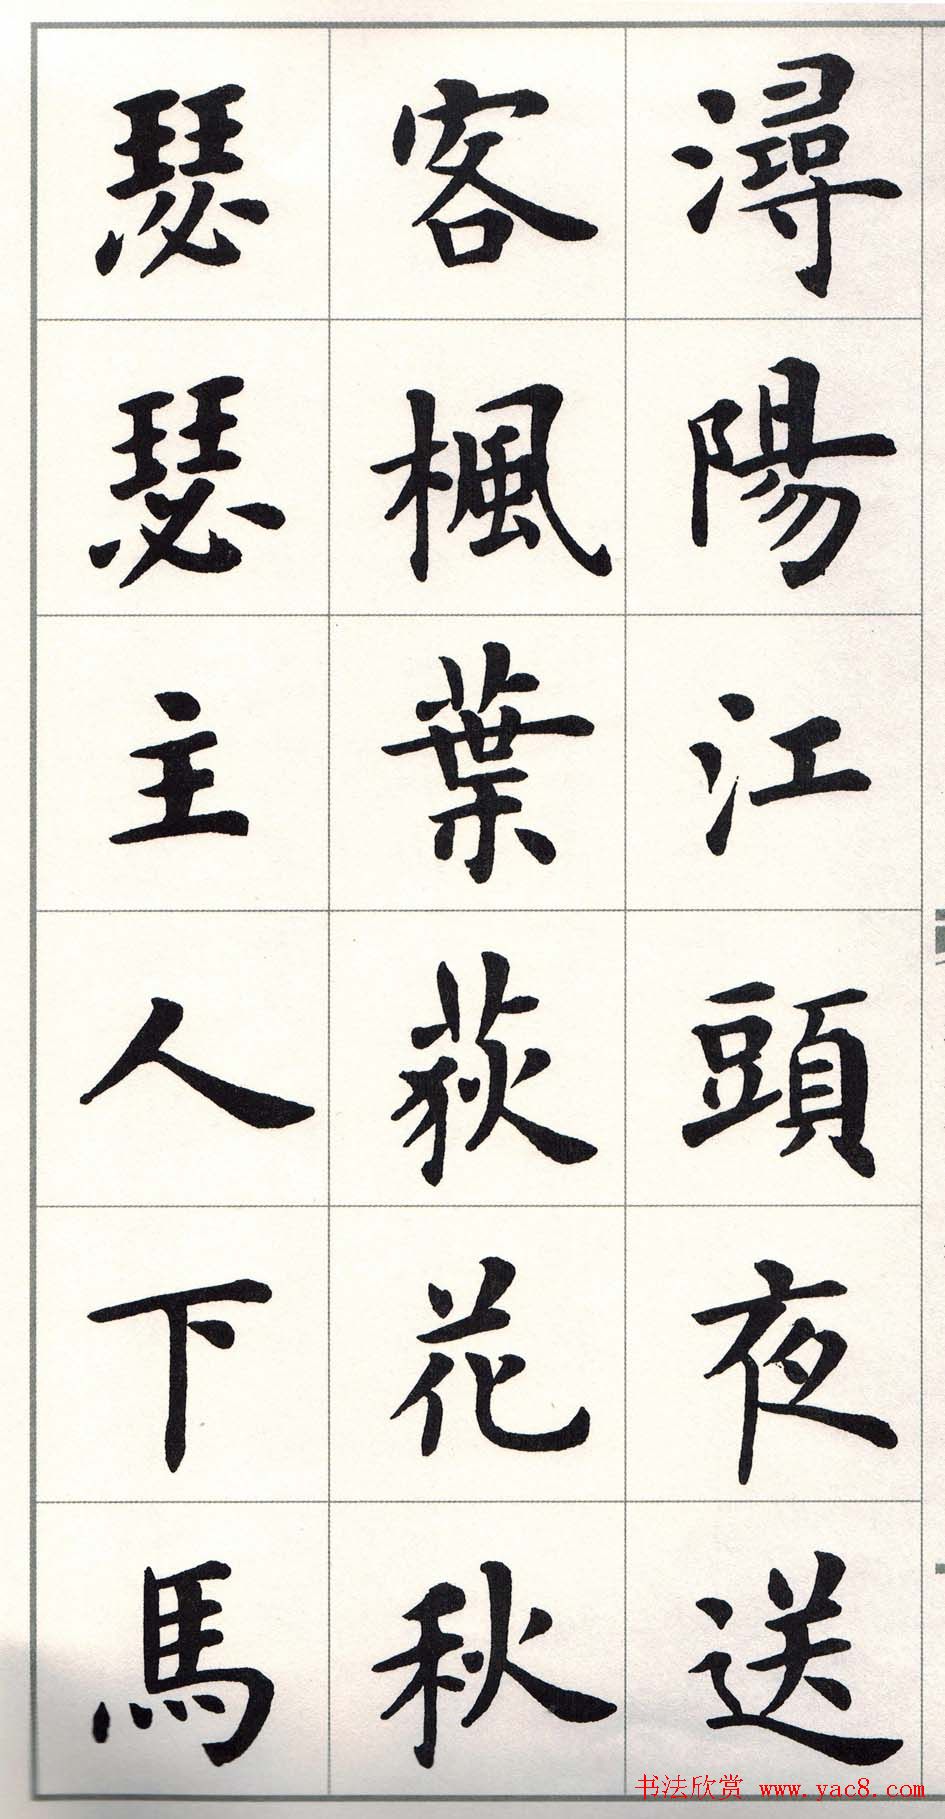 潯陽江頭夜送
客楓葉荻花秋
瑟瑟主人下馬
书法欣赏 www.yac8.com